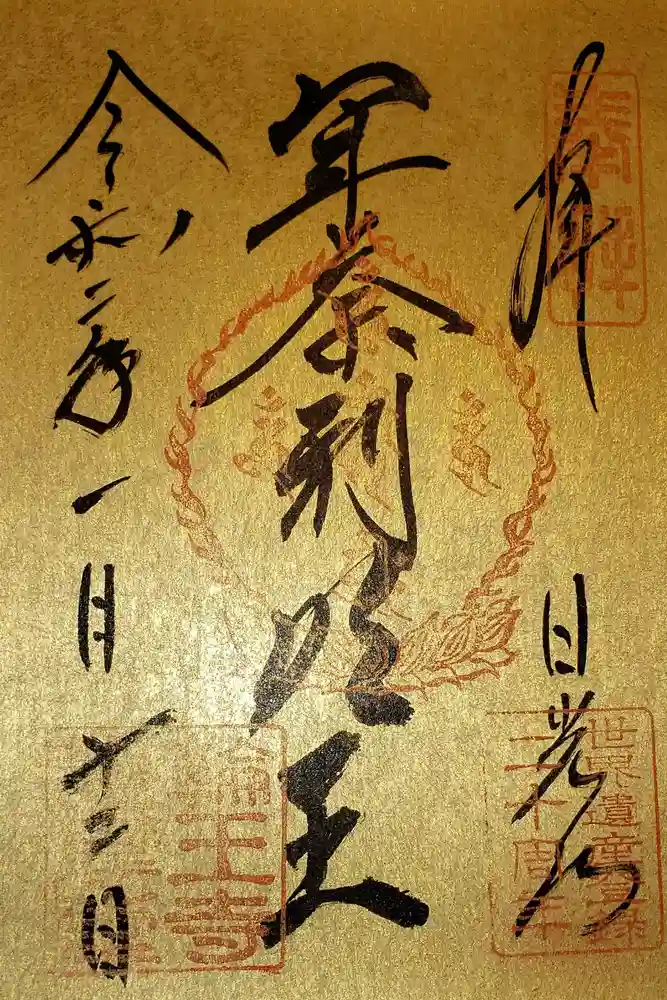 拝
日光山
軍荼利明王
令和二年一月十二日
世界遺産登録
二十周年
輪王寺